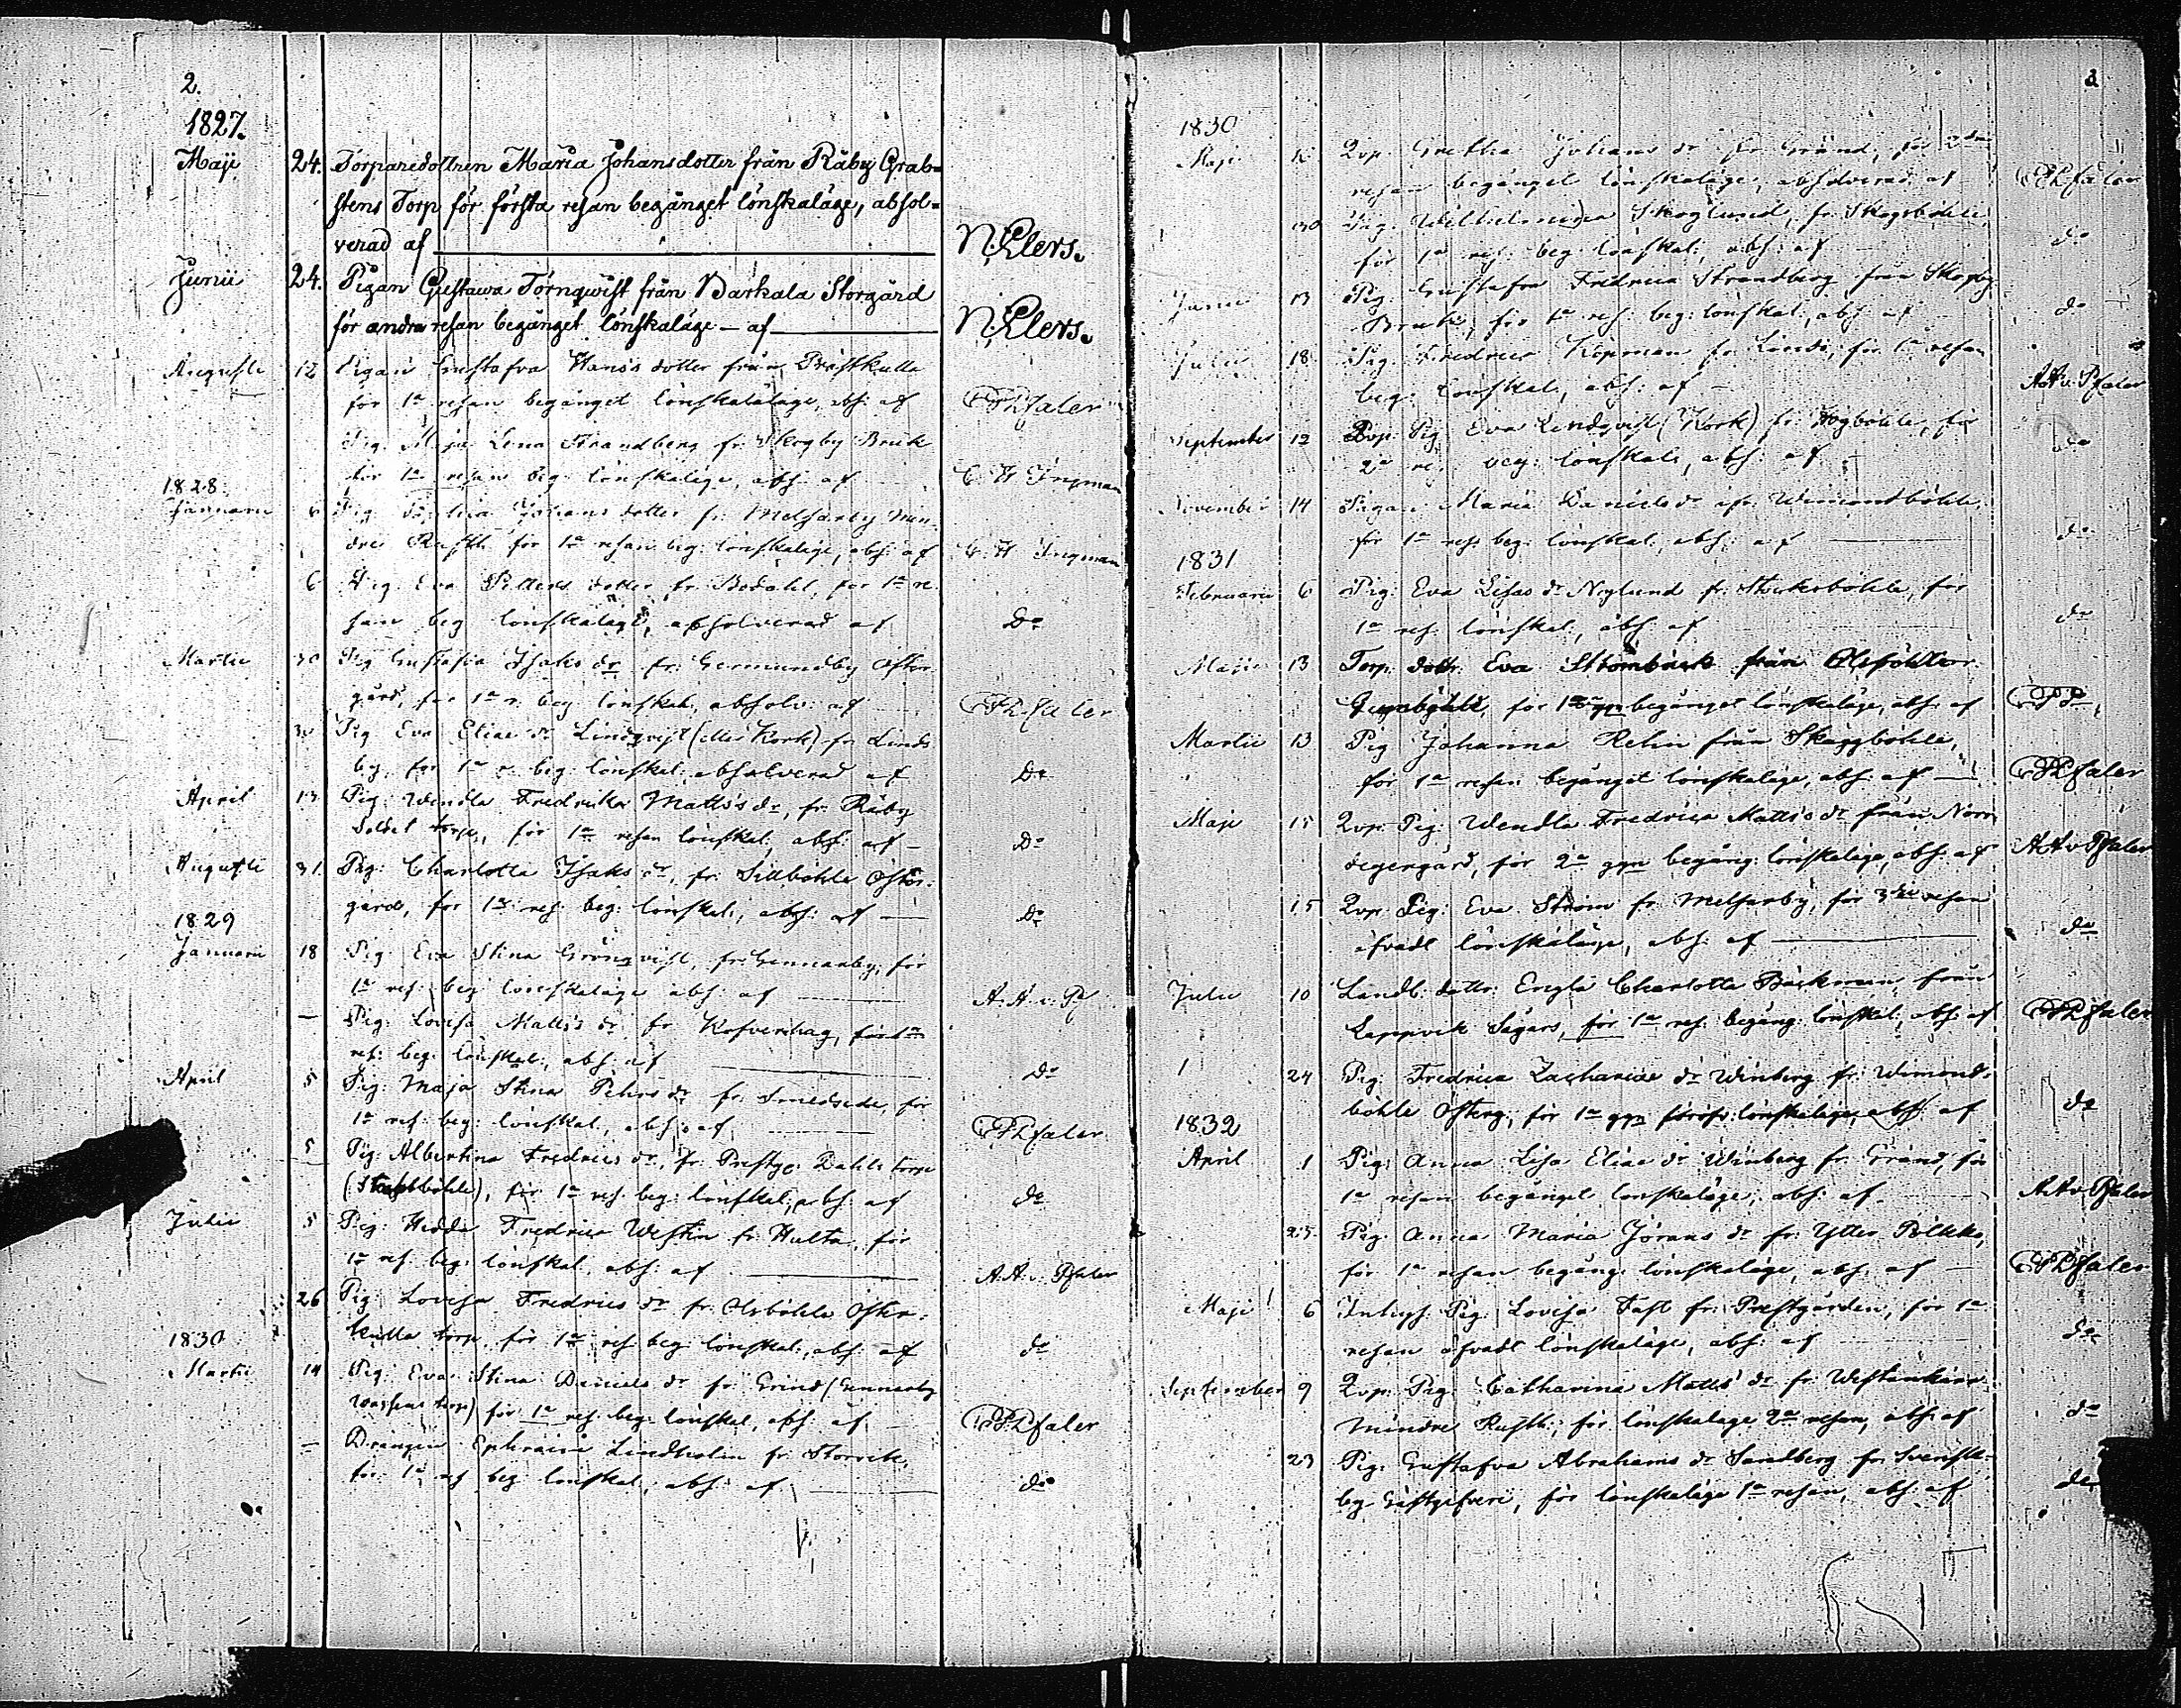 2.
1827.
Maji 24. Torparedottren Maria Johansdotter från Råby Grab=
stens Torp för första resan begånget lönskaläge, absol=
verad af N. Elers.
Junii 24. Pigan Gustawa Törnqwist från Barkala Storgård
för andra resan begånget lönskaläge – af N. Elers.
Augusti 12 Pigan Gustafva Hans's dotter från Prästkulla
för 1a resan begånget lönskaläge, abs: af Phaler
Pig. Maja Lena Strandberg fr. Skogby Bruk
för 1a resan beg. lönskaläge, abs: af C W Ingman
1828.
Januarii 6 Pig. Johans dotter fr. Melsarby Min-
dre Rusth. för 1a resan beg: lönskaläge, abs: af C W Ingman
6 Pig. Eva Petters dotter fr. Bodahl, för 1a re-
san beg lönskaläge, absolverad af Do
Martii 30 Pig Gustafva Isaks dr fr. Germundby Öster-
gård, för 1a r. beg lönskal:, absolv: af Phaler
30 Pig Eva Eliae dr Lindqvist (eller Kork) fr Linds
by, för 1a r. beg: lönskal: absolverad af Do
April 13 Pig: Wendla Fredrika Matts's dr, fr. Råby
Soldat torp, för 1a resan lönskal:, abs: af – Do
Augusti 31 Pig: Charlotta Isaks dr, fr. Sillböhle Öster-
gård, för 1a res: beg: lönskal:, abs: af – Do
1829
Januarii 18 Pig: Eva Stina Grönqvist, fr: Gennarby, för
1a res: beg lönskaläge abs: af A. A. v. Pf
– Pig: Lovisa Matts's dr fr Kofverhag, för 1a
res: beg: lönskal:, abs: af Do
April 5 Pig: Maja Stina Pehrs dr fr. Smedsede, för
1a res: beg: lönskal:, abs: af Phaler
5 Pig: Albertina Fredrics dr, fr. Prestg: Dahls torp
( ), för 1a res: beg: lönskal:, abs: af do
Julii 5 Pig: Hedda Fredrica Westin fr: Hulta, för
1a res: beg: lönskal. abs: af A. A. v. Pfaler
26 Pig: Lovisa Fredrics dr fr: Olsböhle Öster-
kulla torp, för 1a res: beg: lönskal:, abs: af do
1830
Martii 14 Pig: Eva Stina Daniels dr fr Grind (Gennarby
torp) för 1a res: beg: lönskal, abs: af Phaler
– Drängen Ephraim Lindholm fr Storvik,
för 1a res beg lönskal:, abs: af do
1830
Maji Qvp: Gretha Johans dr fr Gränd, för 2dra
resan begånget lönskaläge, absolverad af Phaler
30 Pig. Wilhelmina Skoglund, fr. Skogsböhle,
för 1a res: beg lönskal:, abs: af do
Junii 13 Pig: Gustafva Fredrica Strandberg från Skogby
Bruk, för 1a res: beg: lönskal:, abs af do
Julii 18 Pig. Fredrica Köpman fr Lindö, för 1a resan
beg: lönskal:, abs: af – A.A v. Pfaler
September 12 Qvp: Pig: Eva Lindqvist (Kork) fr: Högböhle, för
2a re: beg: lönskal:, abs: af – do
November 14 Pigan Maria Daniels dr fr. Wimontböhle,
för 1a res: beg: lönskal:, abs: af do
1831
Februarii 6 Pig: Eva Lisas dr Nylund fr: Starkeböhle, för
1a res lönskal:, abs: af do
Maji 13 Torp. dottr. Eva Strömbäck från Olsböhle
, för 1a ggn begånget lönskaläge, abs: af do
Martii 13 Pig Johanna Helin från Skäggböhle,
för 1a resan begånget lönskaläge, abs: af – Phaler
Maji 15 Qvp: Pig: Wendla Fredrica Matts's dr från Norr
degergård, för 2a ggn begång: lönskaläge, abs: af A.A v Pfaler
15 Qvp. Pig: Eva Ström fr. Melsarby, för 3die resan
öfvadt lönskaläge, abs: af do
Julii 10 Landb: dottr: Engla Charlotta Bäckman från
Lappvik Sågars, för 1a res: begång: lönskal:, abs: af Phaler
24 Pig: Fredrica Zachariae dr Winberg fr: Wimonds-
böhle Österg:, för 1a ggn föröfv: lönskaläge, abs: af do
1832
April 1 Pig: Anna Lisa Eliae dr Winberg fr Gränd, för
1a resan begånget lönskaläge, abs: af A.A v Pfaler
25 Pig: Anna Maria Jörans dr fr. Ytter Pölkko,
för 1a resan begång: lönskaläge, abs. af – Phaler
Maji 6 Inhys: Pig: Lovisa Fast fr: Prestgården, för 1a
resan öfvadt lönskaläge, abs: af do
September 9 Qvp: Pig: Catharina Matts' dr fr Westankärr
mindre Rusth:, för lönskaläge 2a resan, abs: af do
23 Pig: Gustafva Abrahams dr Sandberg fr. Svensk-
by Gästgifveri, för lönskaläge 1a resan, abs: af do